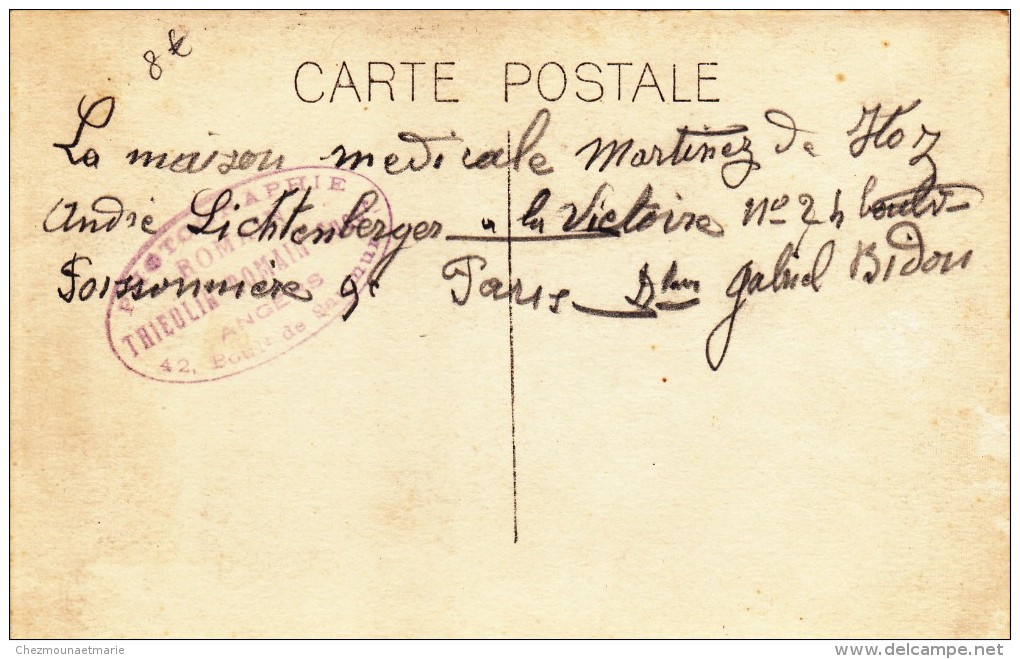 8€
CARTE POSTALE
La maison medicale Martinez de Hoz
André Lichtenberger à la Victoire No 24 boulv
Poissonnière 9e Paris gabriel Bidou
PHOTOGRAPHIE
ROMA
THIEULIN-ROMAIN
ANGERS
42, Boul. de Saumur
Chezmounaetmarie
delcampe.net